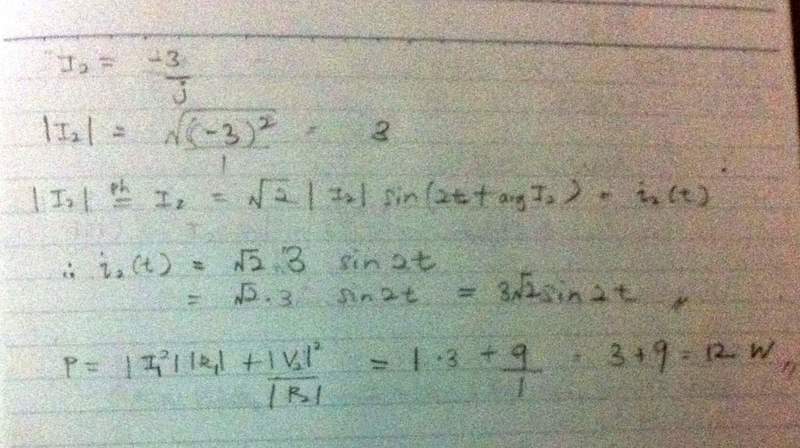 I₂ = -3/j
|I₂| = √(-3)²/1 = 3
|I₂| ph= I₂ = √2 |I₂| sin(2t + arg I₂) = i₂(t)
∴ i₂(t) = √2 · 3 sin 2t
= √2 · 3 sin 2t = 3√2 sin 2t 〃
P = |I₁²||R₁| + |V₂|²/|R₂| = 1·3 + 9/1 = 3+9 = 12 W 〃